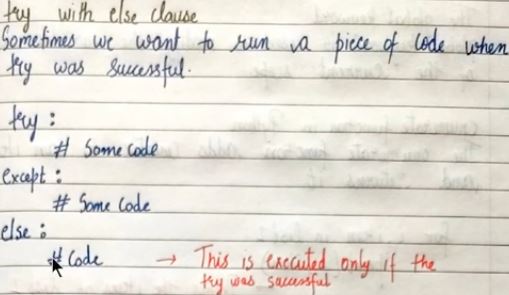 try with else clause
Sometimes we want to run a piece of code when
try was successful.
try :
# Some code
except :
# Some code
else :
# Code → This is executed only if the
try was successful